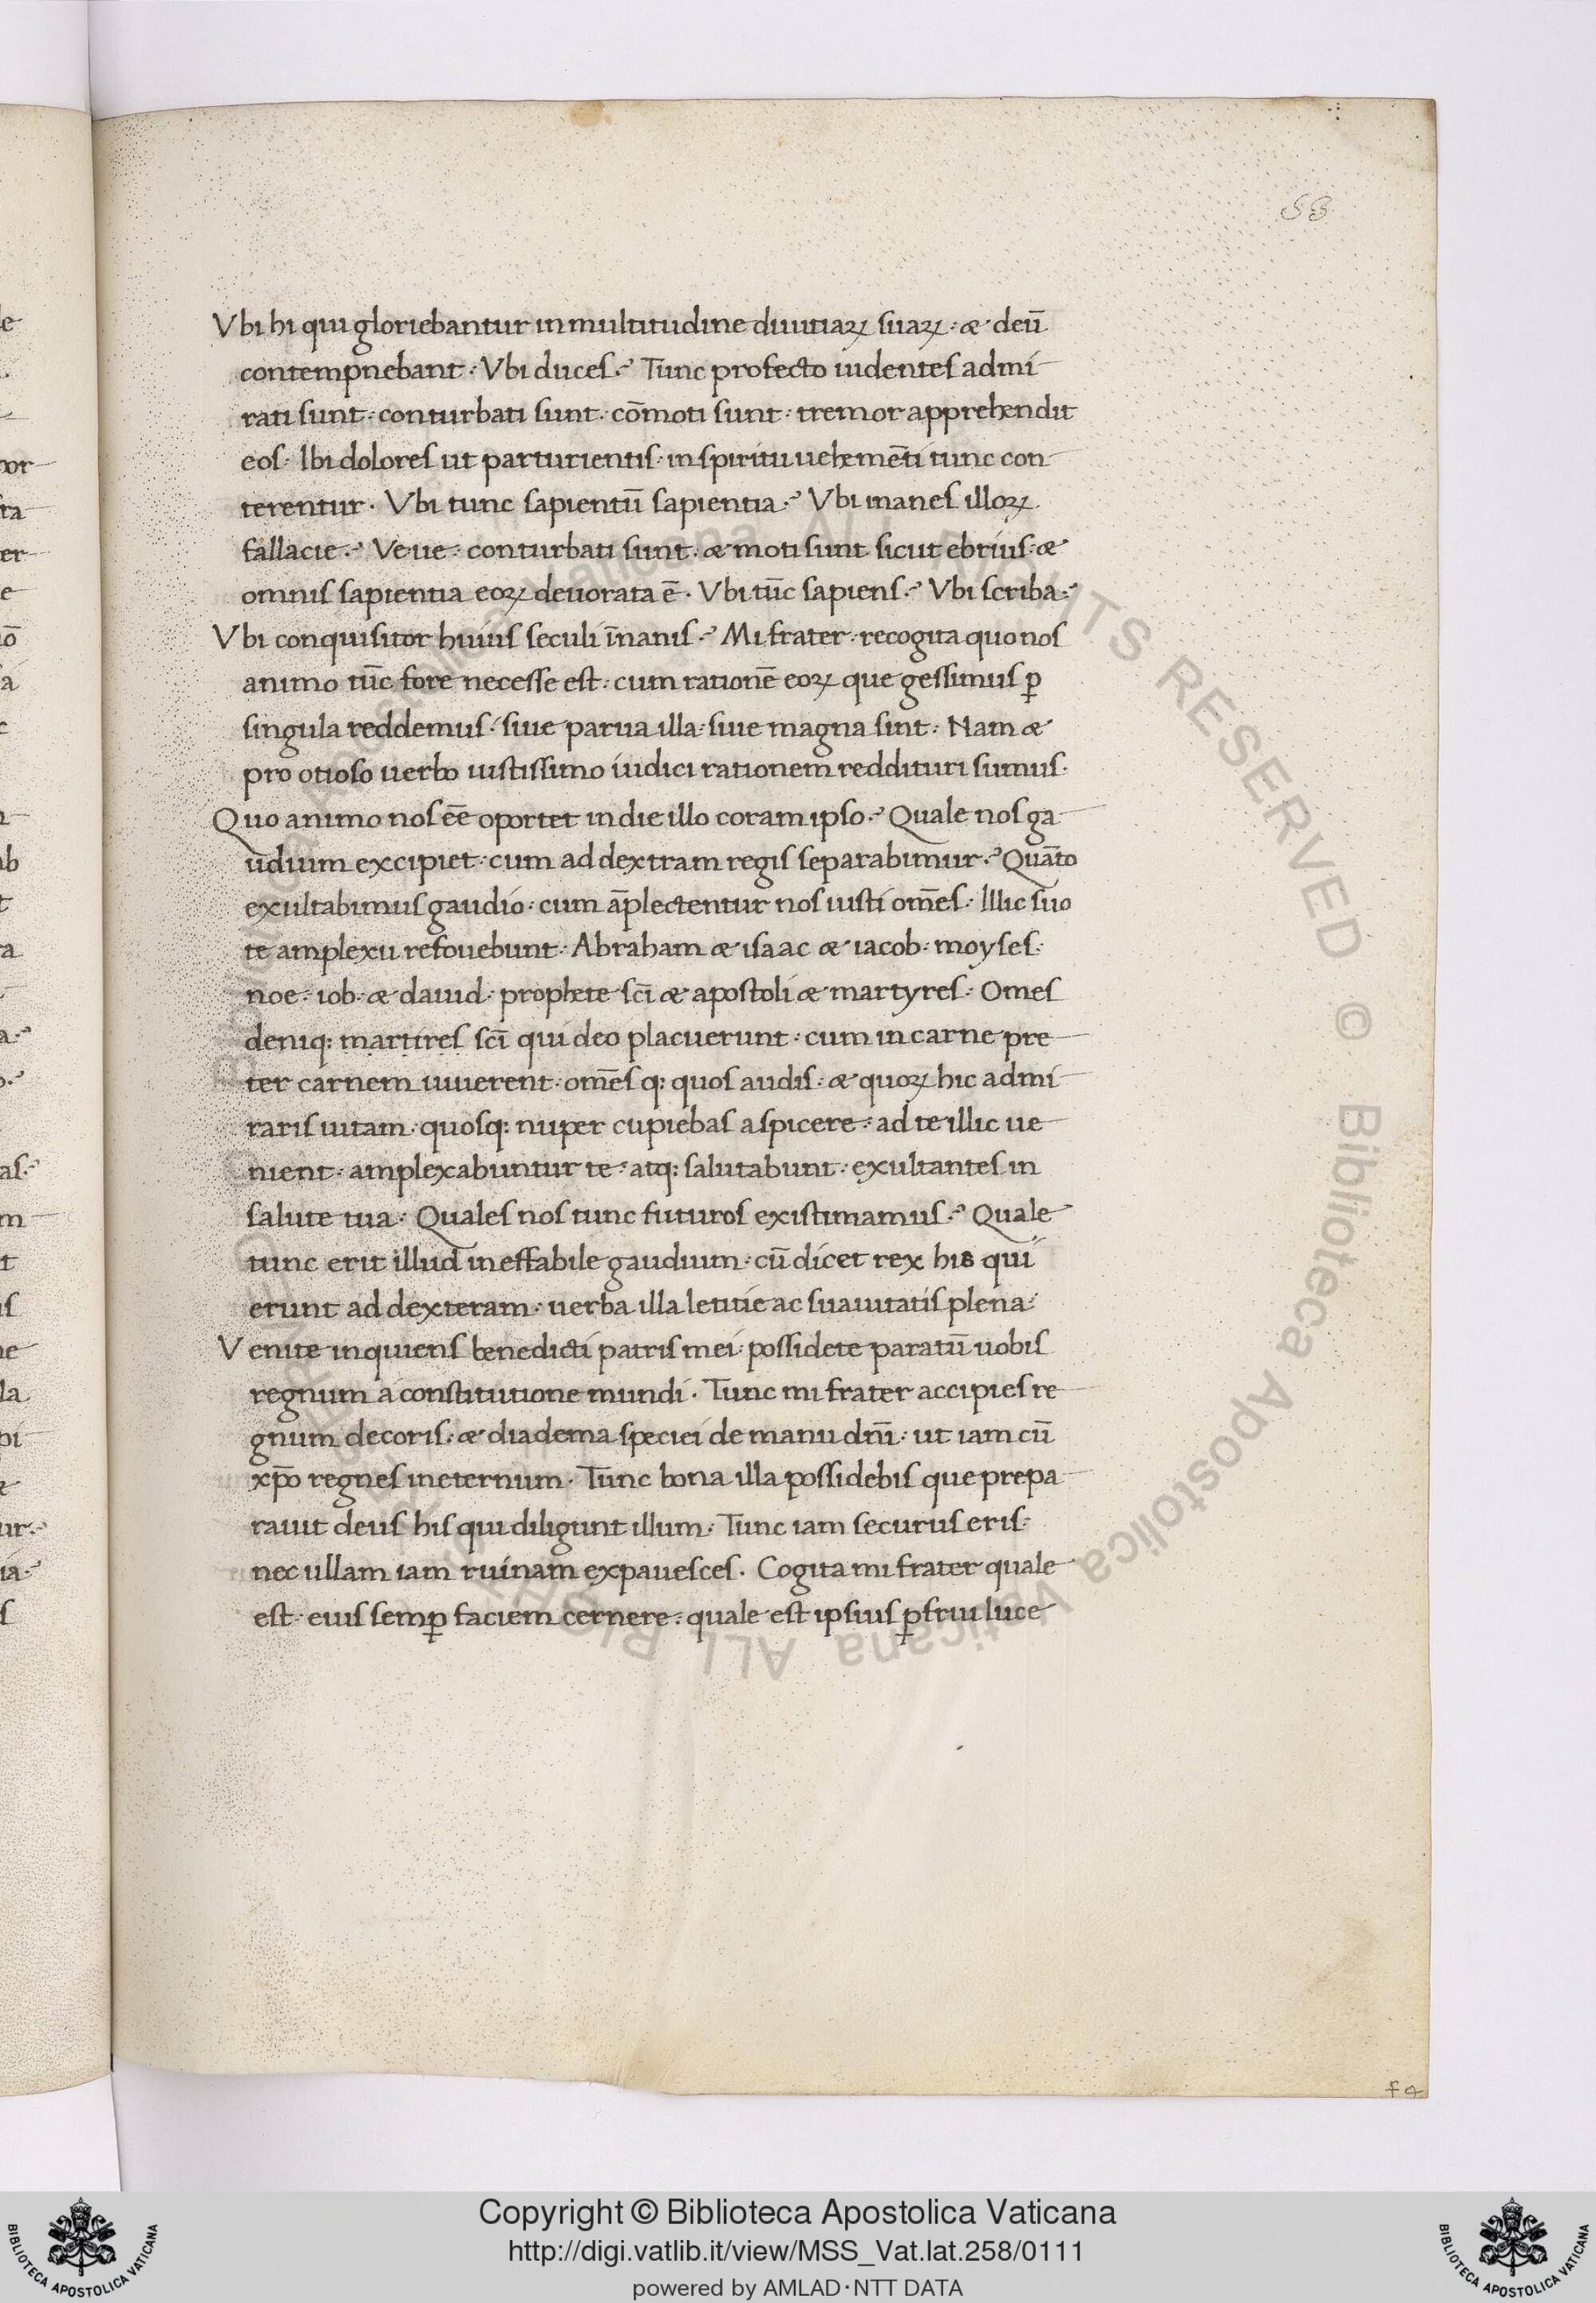 53
Vbi hi qui gloriebantur in multitudine diuitiaꝝ suaꝝ· æ deū
contempnebant· Vbi duces? Tunc profecto uidentes admi
rati sunt· conturbati sunt· cōmoti sunt· tremor apprehendit
eos· Ibi dolores ut parturientis· in spiritu uehemēti tunc con
terentur· Vbi tunc sapientū sapientia? Vbi inanes illoꝝ
fallacie? Ve ue· conturbati sunt· æ moti sunt sicut ebrius· æ
omnis sapientia eoꝝ deuorata ē· Vbi tūc sapiens? Vbi scriba?
Vbi conquisitor huius seculi īnanis? Mi frater· recogita quo nos
animo tūc fore necesse est· cum rationē eoꝝ que gessimus ꝑ
singula reddemus· siue parua illa· siue magna sint· Nam æ
pro otioso uerbo iustissimo iudici rationem reddituri sumus·
Quo animo nos eē oportet in die illo coram ipso? Quale nos ga
udium excipiet· cum ad dextram regis separabimur? Quāto
exultabimus gaudio· cum āplectentur nos iusti om̄es· Illic suo
te amplexu refouebunt· Abraham æ isaac æ iacob· moyses·
noe· iob· æ dauid· prophete sc̄i æ apostoli æ martyres· Omes
deniq: martires sc̄i qui deo placuerunt· cum in carne pre
ter carnem uiuerent· om̄es q: quos audis· æ quoꝝ hic admi
raris uitam· quosq: nuper cupiebas aspicere· ad te illic ue
nient· amplexabuntur te· atq: salutabunt· exultantes in
salute tua· Quales nos tunc futuros existimamus? Quale
tunc erit illud ineffabile gaudium· cū dicet rex his qui
erunt ad dexteram· uerba illa letitie ac suauitatis plena·
Venite inquiens benedicti patris mei· possidete paratū uobis
regnum a constitutione mundi· Tunc mi frater accipies re
gnum decoris· æ diadema speciei de manu dn̄i· ut iam cū
xp̄o regnes in eternum· Tunc bona illa possidebis que prepa
rauit deus his qui diligunt illum· Tunc iam securus eris·
nec ullam iam ruinam expauesces· Cogita mi frater quale
est· eius semꝑ faciem cernere· quale est ipsius ꝑfrui luce
f 4
Copyright © Biblioteca Apostolica Vaticana
http://digi.vatlib.it/view/MSS_Vat.lat.258/0111
powered by AMLAD·NTT DATA